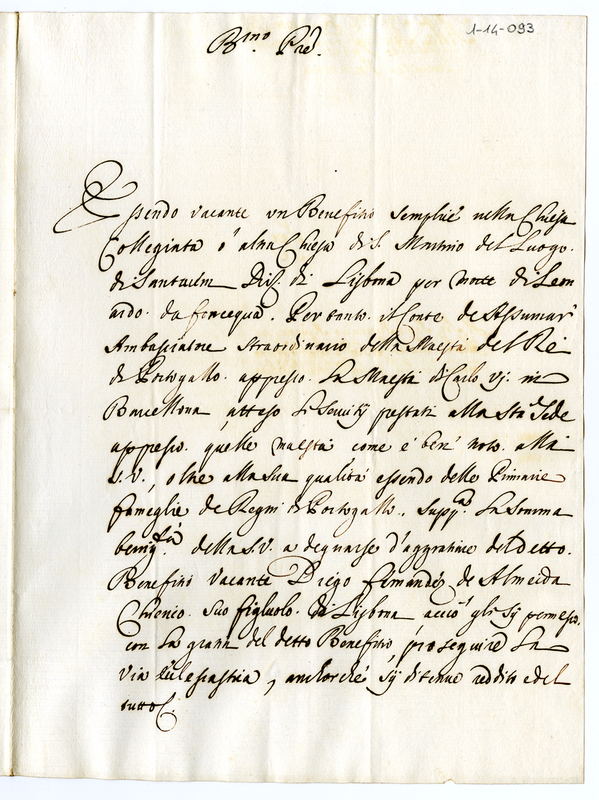 1-14-093
B.mo Pre.
Essendo vacante un Benefitio semplice nella Chiesa
Collegiata ò altra Chiesa di S. Martino del Luogo
di Santarem Dis. di Lisbona per morte di Leon
ardo da foncequa. Per tanto il Conte de Assumar
Ambasciatore straordinario della Maestà del Rè
di Portogallo appresso La Maestà di Carlo VI. in
Barcellona, atteso Li servitij prestati alla Sta. Sede
appresso quella maestà come è ben noto alla
S.V., oltre alla sua qualità essendo delle Primarie
fameglie de Regni di Portogallo, Supp.ca La somma
benig.tà della S.V. a degnarse d'aggratiare del detto
Benefitio vacante Diego fernandez de Almeida
Chierico suo figluolo di Lisbona acciò gli sij permesso
con La gratia del detto Benefitio proseguire La
via Eclesiastica, anchorché sij di tenue reddito e del
tutto